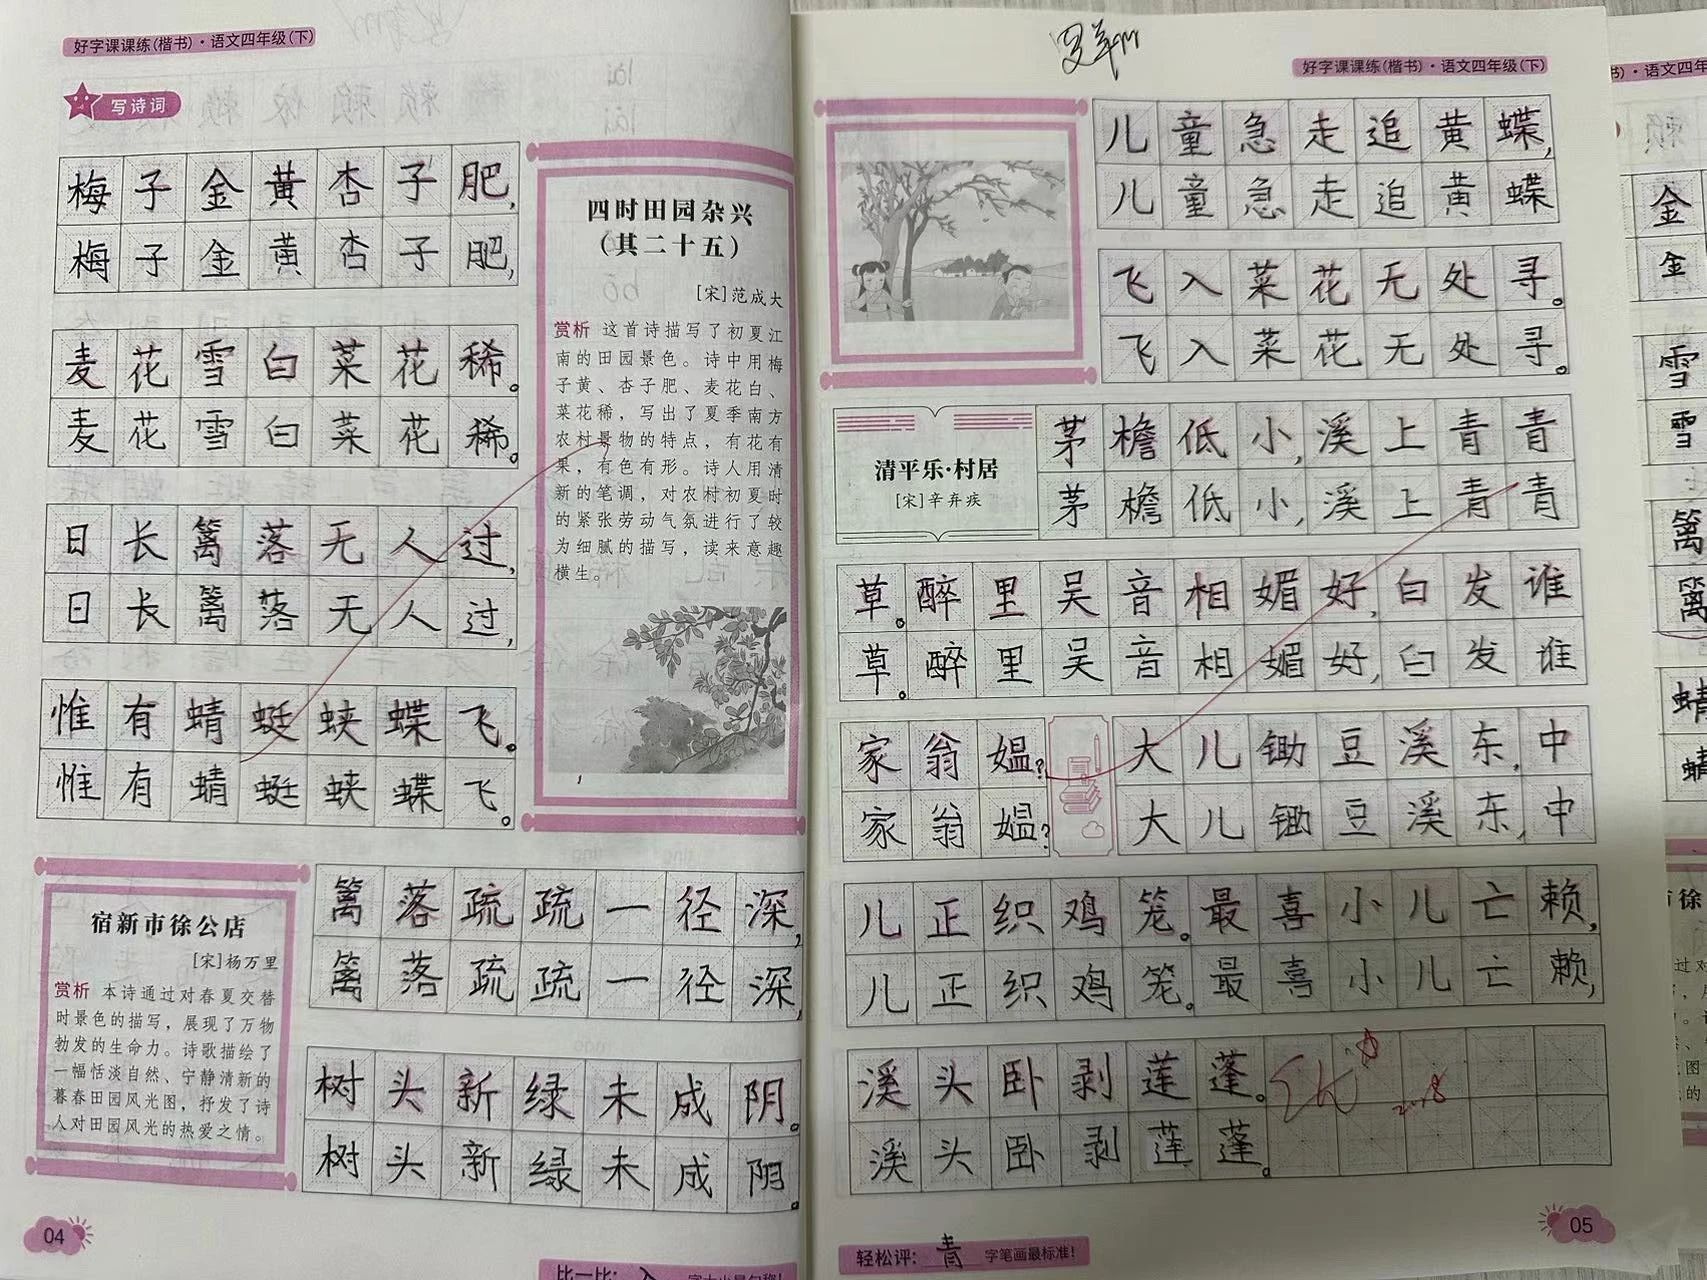 好字课课练(楷书)·语文四年级(下)
写诗词
梅子金黄杏子肥,
梅子金黄杏子肥,
麦花雪白菜花稀。
麦花雪白菜花稀。
日长篱落无人过,
日长篱落无人过,
惟有蜻蜓蛱蝶飞。
惟有蜻蜓蛱蝶飞。
四时田园杂兴
(其二十五)
[宋]范成大
赏析 这首诗描写了初夏江
南的田园景色。诗中用梅
子黄、杏子肥、麦花白、
菜花稀,写出了夏季南方
农村景物的特点,有花有
果,有色有形。诗人用清
新的笔调,对农村初夏时
的紧张劳动气氛进行了较
为细腻的描写,读来意趣
横生。
宿新市徐公店
[宋]杨万里
赏析 本诗通过对春夏交替
时景色的描写,展现了万物
勃发的生命力。诗歌描绘了
一幅恬淡自然、宁静清新的
暮春田园风光图,抒发了诗
人对田园风光的热爱之情。
篱落疏疏一径深,
篱落疏疏一径深,
树头新绿未成阴。
树头新绿未成阴。
04
好字课课练(楷书)·语文四年级(下)
儿童急走追黄蝶,
儿童急走追黄蝶
飞入菜花无处寻。
飞入菜花无处寻。
清平乐·村居
[宋]辛弃疾
茅檐低小,溪上青青
茅檐低小,溪上青青
草。醉里吴音相媚好,白发谁
草。醉里吴音相媚好,白发谁
家翁媪?大儿锄豆溪东,中
家翁媪?大儿锄豆溪东,中
儿正织鸡笼。最喜小儿亡赖,
儿正织鸡笼。最喜小儿亡赖,
溪头卧剥莲蓬。
溪头卧剥莲蓬。
轻松评: 青 字笔画最标准!
05